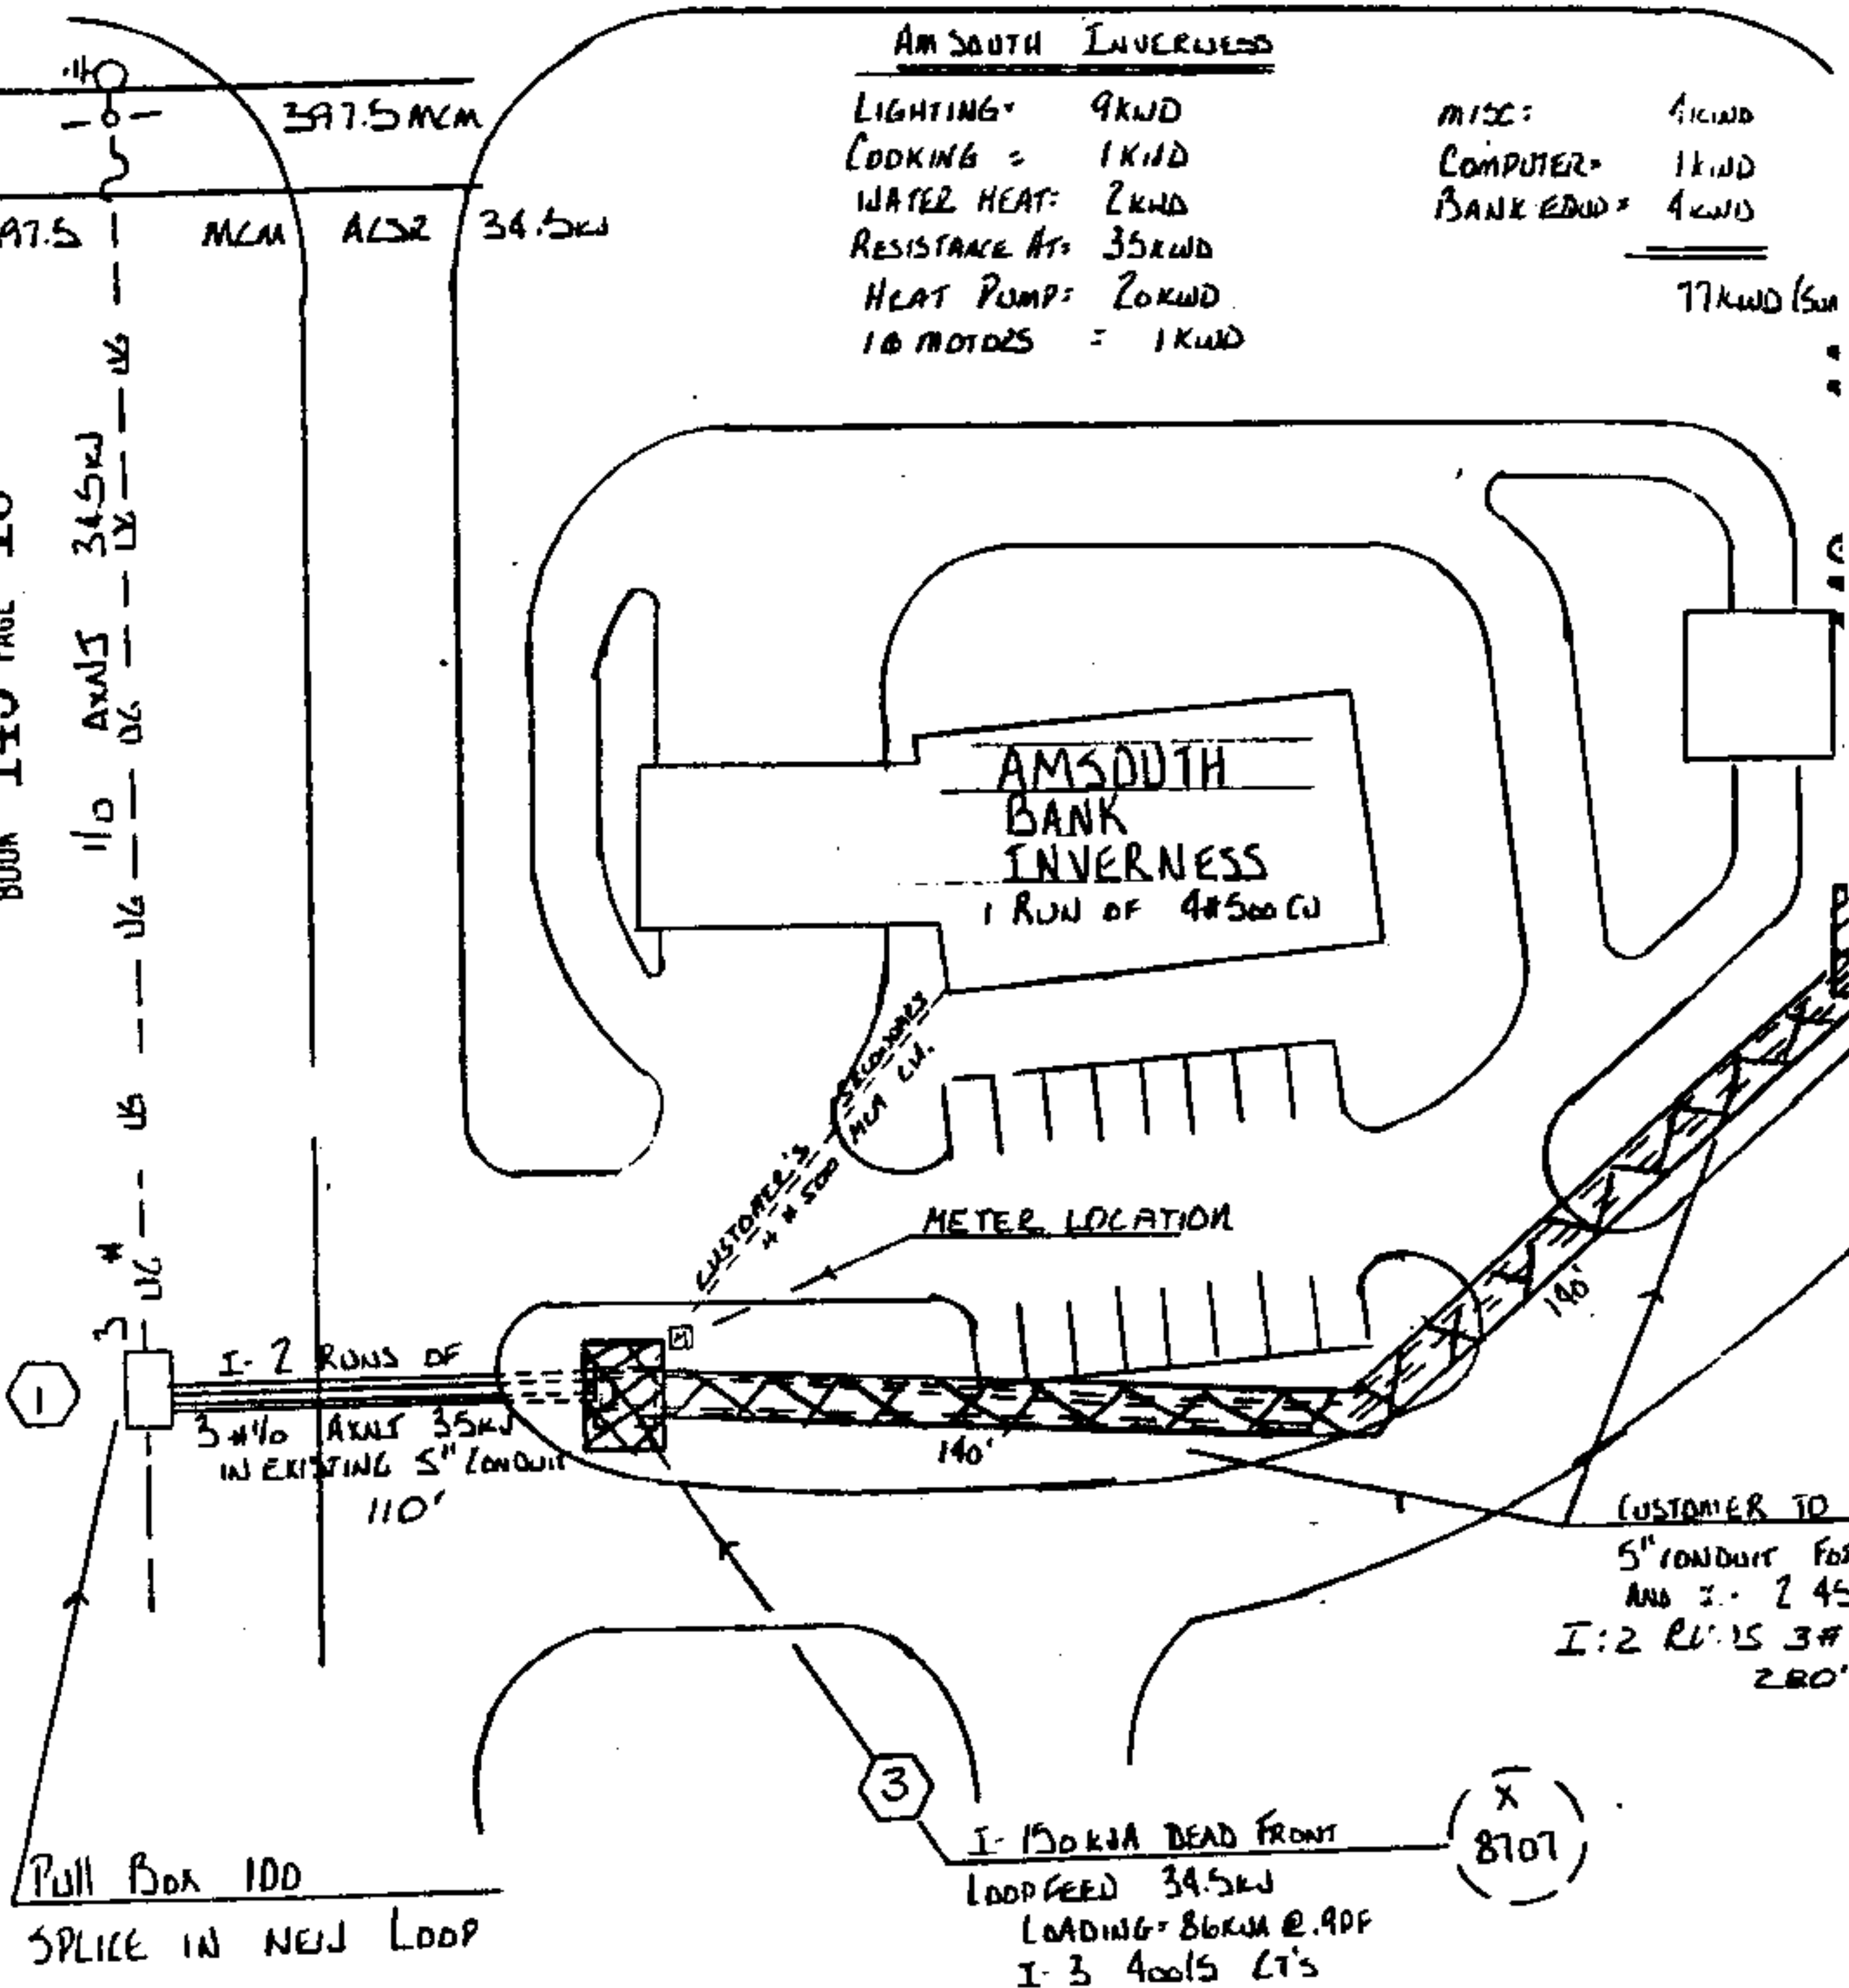 AMSOUTH INVERNESS
LIGHTING= 9KWD
COOKING = 1KWD
WATER HEAT= 2KWD
RESISTANCE HT= 35KWD
HEAT PUMP= 20KWD
1Φ MOTORS = 1KWD
MISC= 4KWD
COMPUTER= 1KWD
BANK EQUIP= 4KWD
77KWD (SUM
397.5 MCM
97.5 MCM ACSR 34.5KV
1/0 AXNJ 34.5KV
UG UG UG UG UG UG UG
BOOK 140 PAGE
AMSOUTH
BANK
INVERNESS
1 RUN OF 4#500 CU
CUSTOMER'S SECONDARIES
4 # 500 MCM CU.
METER LOCATION
M
1
3
I- 2 RUNS OF
3 #1/0 AXNJ 35KV
IN EXISTING 5" CONDUIT
110'
140'
140'
CUSTOMER TO
5" CONDUIT FOR
AND I- 2 45
I:2 RUNS 3#
280'
PULL BOX 100
SPLICE IN NEW LOOP
3
I- 150 KVA DEAD FRONT
LOOP FEED 34.5KV
LOADING= 86KVA @ .9PF
I- 3 400/5 CT'S
X
8707